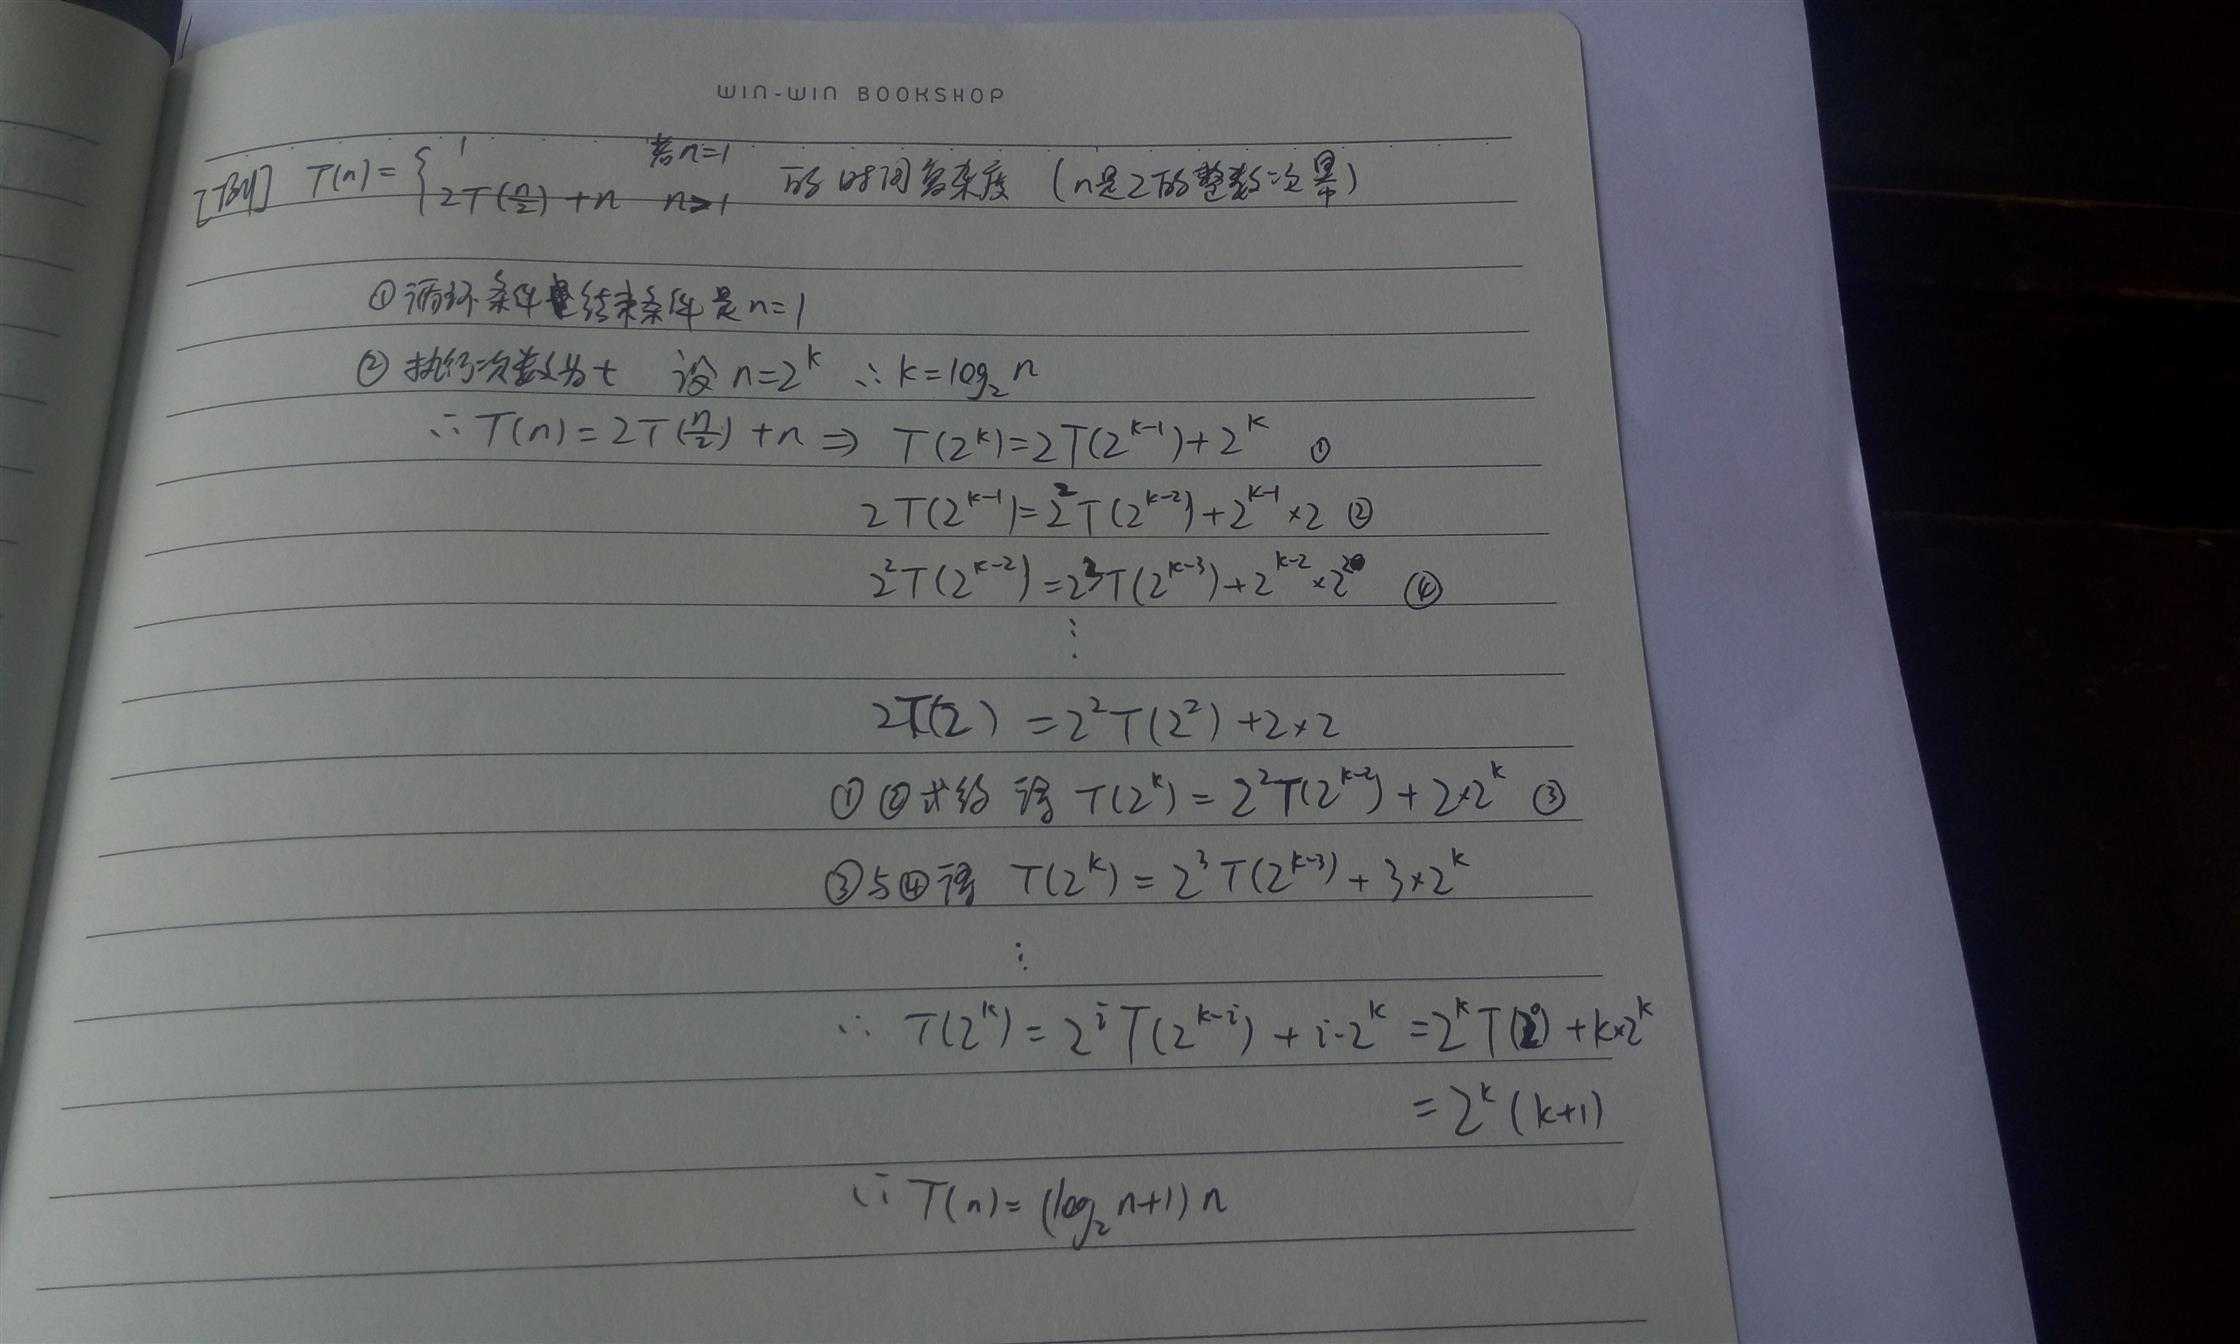 WIN-WIN BOOKSHOP
[例] T(n) = { 1 若n=1
2T(n/2) + n n>1 的时间复杂度 (n是2的整数次幂)
① 循环条件结束条件是n=1
② 执行次数为t 设 n=2^k ∴ k=log₂n
∴ T(n) = 2T(n/2) + n ⇒ T(2^k)=2T(2^{k-1})+2^k ①
2T(2^{k-1})=2²T(2^{k-2})+2^{k-1}×2 ②
2²T(2^{k-2})=2³T(2^{k-3})+2^{k-2}×2² ④
⋮
2T(2) = 2²T(2²) + 2×2
①② 得 T(2^k) = 2²T(2^{k-2}) + 2×2^k ③
③与④得 T(2^k) = 2³T(2^{k-3}) + 3×2^k
⋮
∴ T(2^k) = 2^i T(2^{k-i}) + i·2^k = 2^k T(2⁰) + k×2^k
= 2^k (k+1)
∴ T(n) = (log₂n+1) n